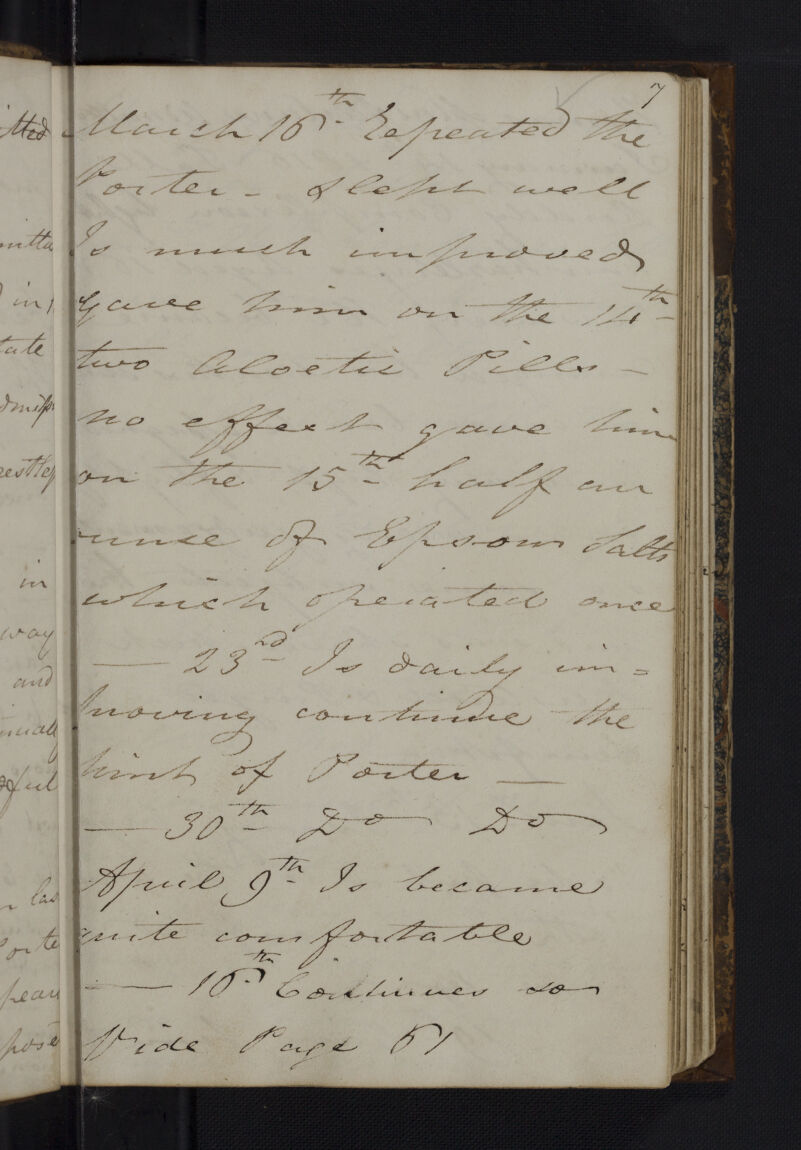 7
March 16th Repeated the
Porter - Slept well
Is much improved
gave him on the 14th
two Aloetic Pills -
no effect gave him
on the 15th half an
ounce of Epsom Salts
which operated once
— 23rd Is daily im=
proving continue the
pint of Porter —
— 30th Do Do
April 9th Is became
quite comfortable
— 16th Continues so
Vide Page 61